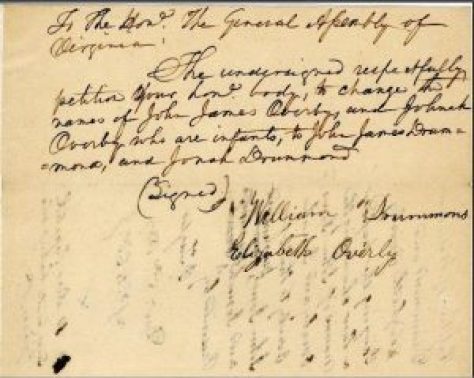 To the Hon.r The General Assembly of
Virginia.
The undersigned respectfully
petition your hon.r body, to change the
names of John James Overby, and Johnah
Overby who are infants, to John James Drum=
=mond, and Jonah Drummond
(Signed)
William Drummond
Elizabeth Overby